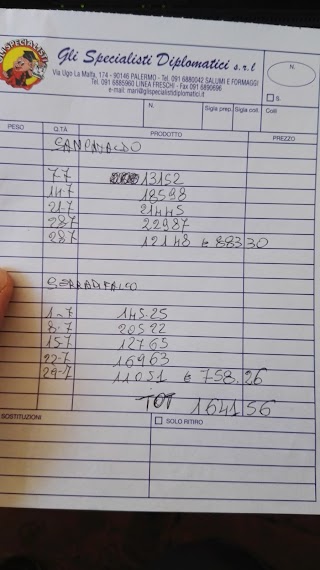 SPECIALISTI
Gli Specialisti Diplomatici s.r.l
Via Ugo La Malfa, 174 - 90146 PALERMO - Tel. 091 6880042 SALUMI E FORMAGGI
Tel. 091 6885960 LINEA FRESCHI - Fax 091 6890696
e-mail: mari@glispecialistidiplomatici.it
N.
S.
N. Sigla prep. Sigla coll. Colli
PESO Q.TÀ PRODOTTO PREZZO
SANCATALDO
7-7 13152
14-7 18598
21-7 21445
28-7 22987
28-7 12148 € 883.30
SERRADIFALCO
1-7 145.25
8-7 20522
15-7 12765
22-7 16963
29-7 11051 € 758.26
TOT 1641.56
SOSTITUZIONI SOLO RITIRO